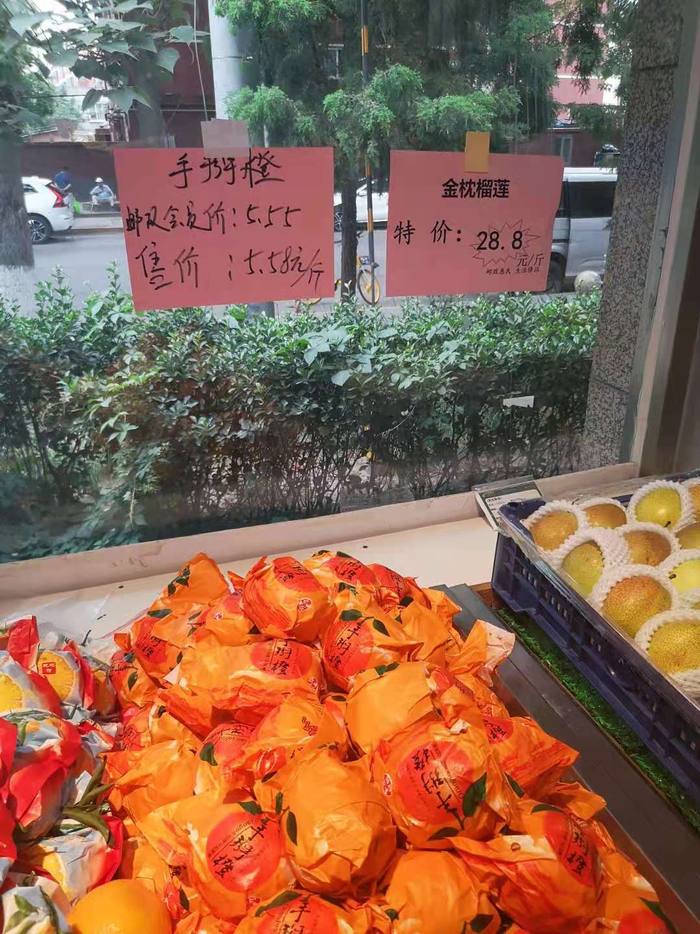 手掰橙
邮政会员价:5.55
售价:5.58元/斤
金枕榴莲
特价:28.8
元/斤
邮政惠民 生活驿站
手掰橙
手掰橙
手掰橙
手掰橙